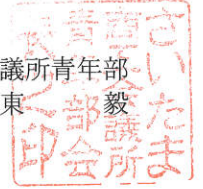 議所青年部
東　　毅
さいたま
商工会議所
青年部会
長之印